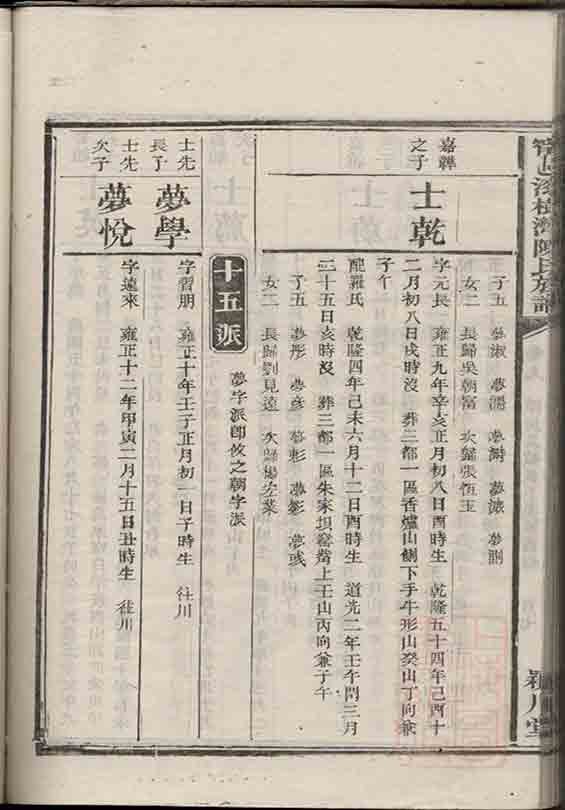 子五 夢淑 夢 夢澍 夢 夢
女二 長歸吳朝富 次歸張恆玉
嘉聨之子
士乾
字元長 雍正九年辛亥正月初八日酉時生 乾隆五十四年己酉十
二月初八日戌時沒 葬三都一區香爐山側下手牛形山癸山丁向兼
子午
配羅氏 乾隆四年己未六月十二日酉時生 道光二年壬午閏三月
二十五日亥時沒 葬三都一區朱家垻 上壬山丙向兼子午
子五 夢彤 夢彥 夢彰 夢影 夢彧
女二 長歸劉見遠 次歸楊 業
十五派
夢字派即攸之朝字派
士先長子
夢學
字習朋 雍正十年壬子正月初一日子時生 往川
士先次子
夢悅
字遠來 雍正十二年甲寅二月十五日丑時生 往川
陳氏族譜
潁川堂